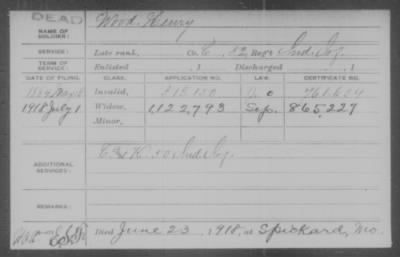 DEAD
NAME OF SOLDIER: Wood, Henry
SERVICE: Late rank, Co. C, 82 Reg't Ind. Inf.
TERM OF SERVICE: Enlisted , 1 Discharged , 1
DATE OF FILING. CLASS. APPLICATION NO. LAW. CERTIFICATE NO.
Invalid,
1918 July 1 Widow, 1,122,793 Sep. 865,227
Minor,
ADDITIONAL SERVICES: Ind. Inf.
REMARKS:
Died June 23, 1918, at Spickard, Mo.